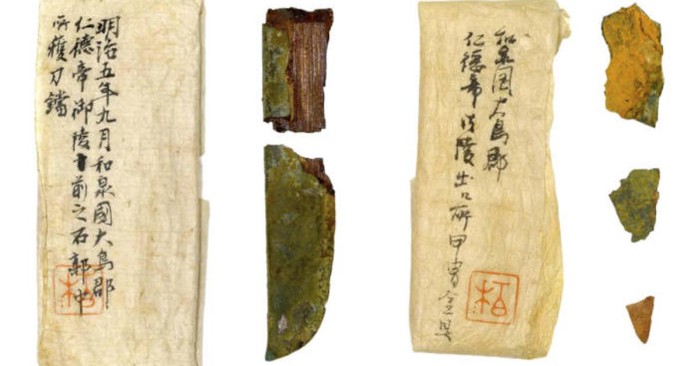 明治五年九月和泉國大鳥郡
仁德帝御陵前之石郭中
所獲刀鐺
和泉国大鳥郡
仁德帝御陵出口所甲冑金具
柏
柏